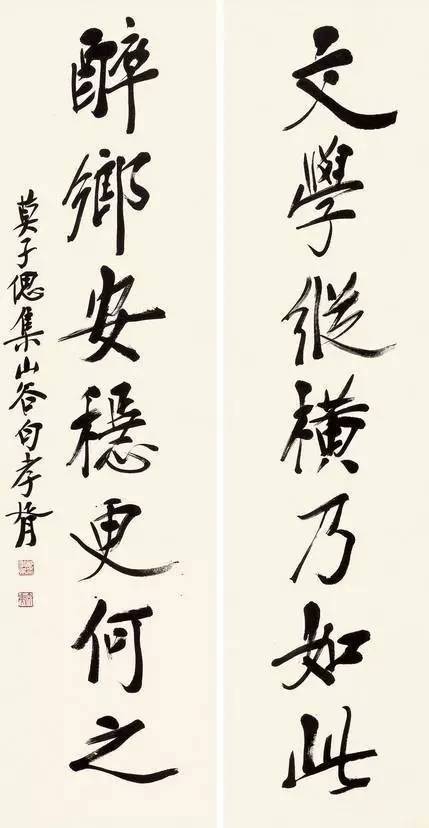 文學縱橫乃如此
醉鄉安穩更何之
莫子偲集山谷句孝胥